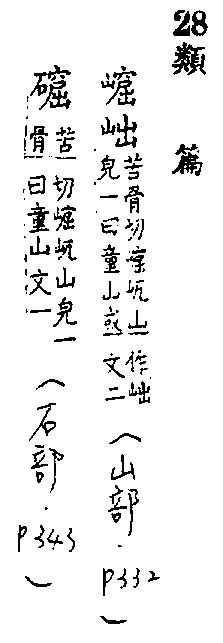 28 類 篇
苦骨切屼山皃一曰童山或作文二（山部．P332）
苦骨切屼山皃一曰童山文一（石部．P343）